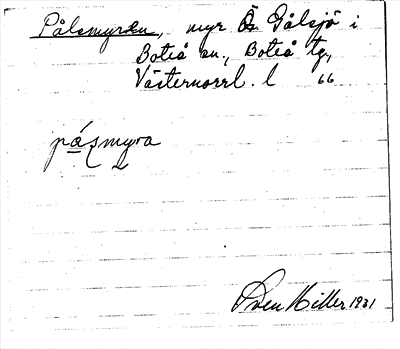 Pålsmyren, myr Ö Gålsjö i
Boteå sn., Boteå tg,
Västernorrl. l 66
pásmyra
Sven Hiller 1931